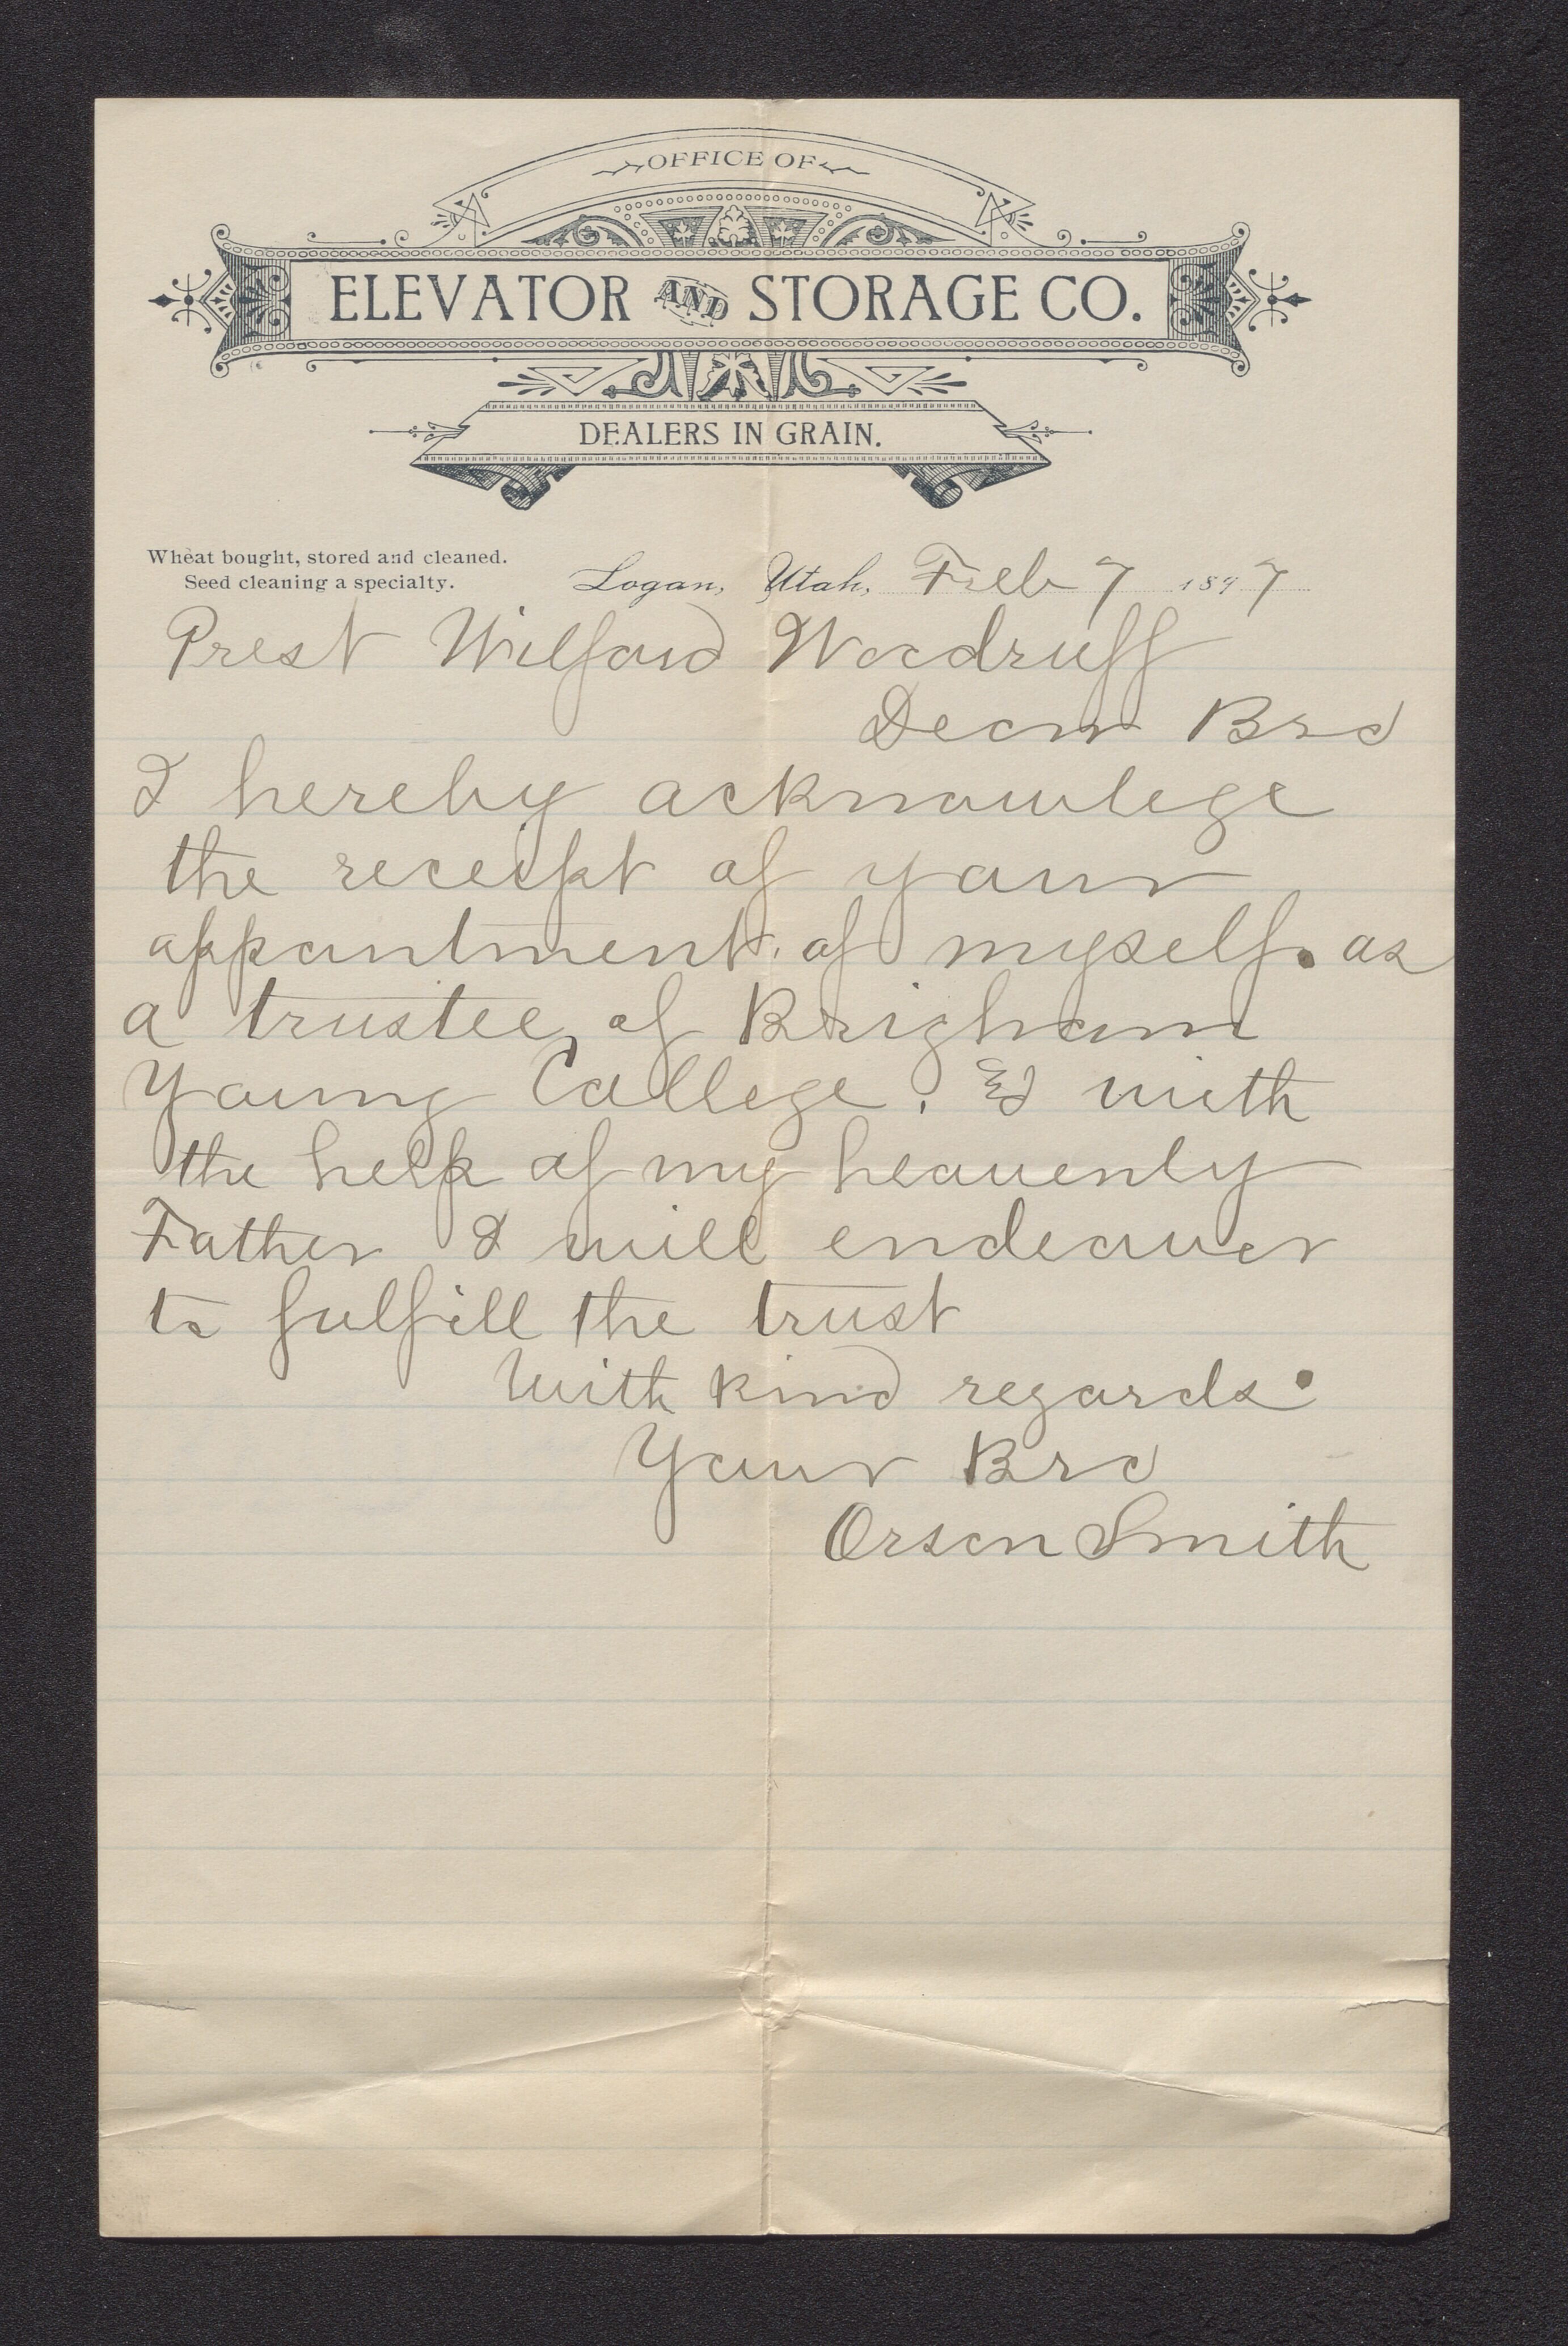 OFFICE OF
ELEVATOR AND STORAGE CO.
DEALERS IN GRAIN.
Wheat bought, stored and cleaned.
Seed cleaning a specialty.
Logan, Utah, Feb 7 1897
Prest Wilford Woodruff
Dear Bro
I hereby acknowlege
the receipt of your
appointment. of myself. as
a trustee, of Brigham
Young College. & with
the help of my heavenly
Father I will endeavor
to fulfill the trust
With kind regards.
Your Bro
Orson Smith